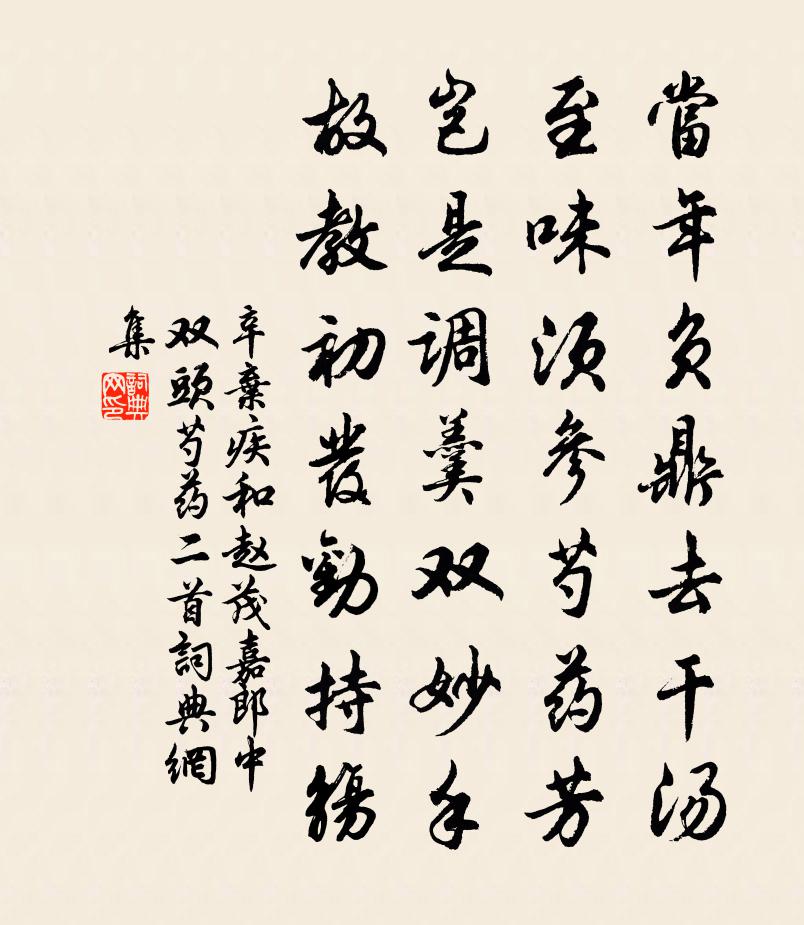 當年负鼎去干汤
至味须參芍药芳
岂是调羹双妙手
故教初發勸持觞
辛棄疾和赵茂嘉郎中
双頭芍药二首詞典網
集
詞典
网印